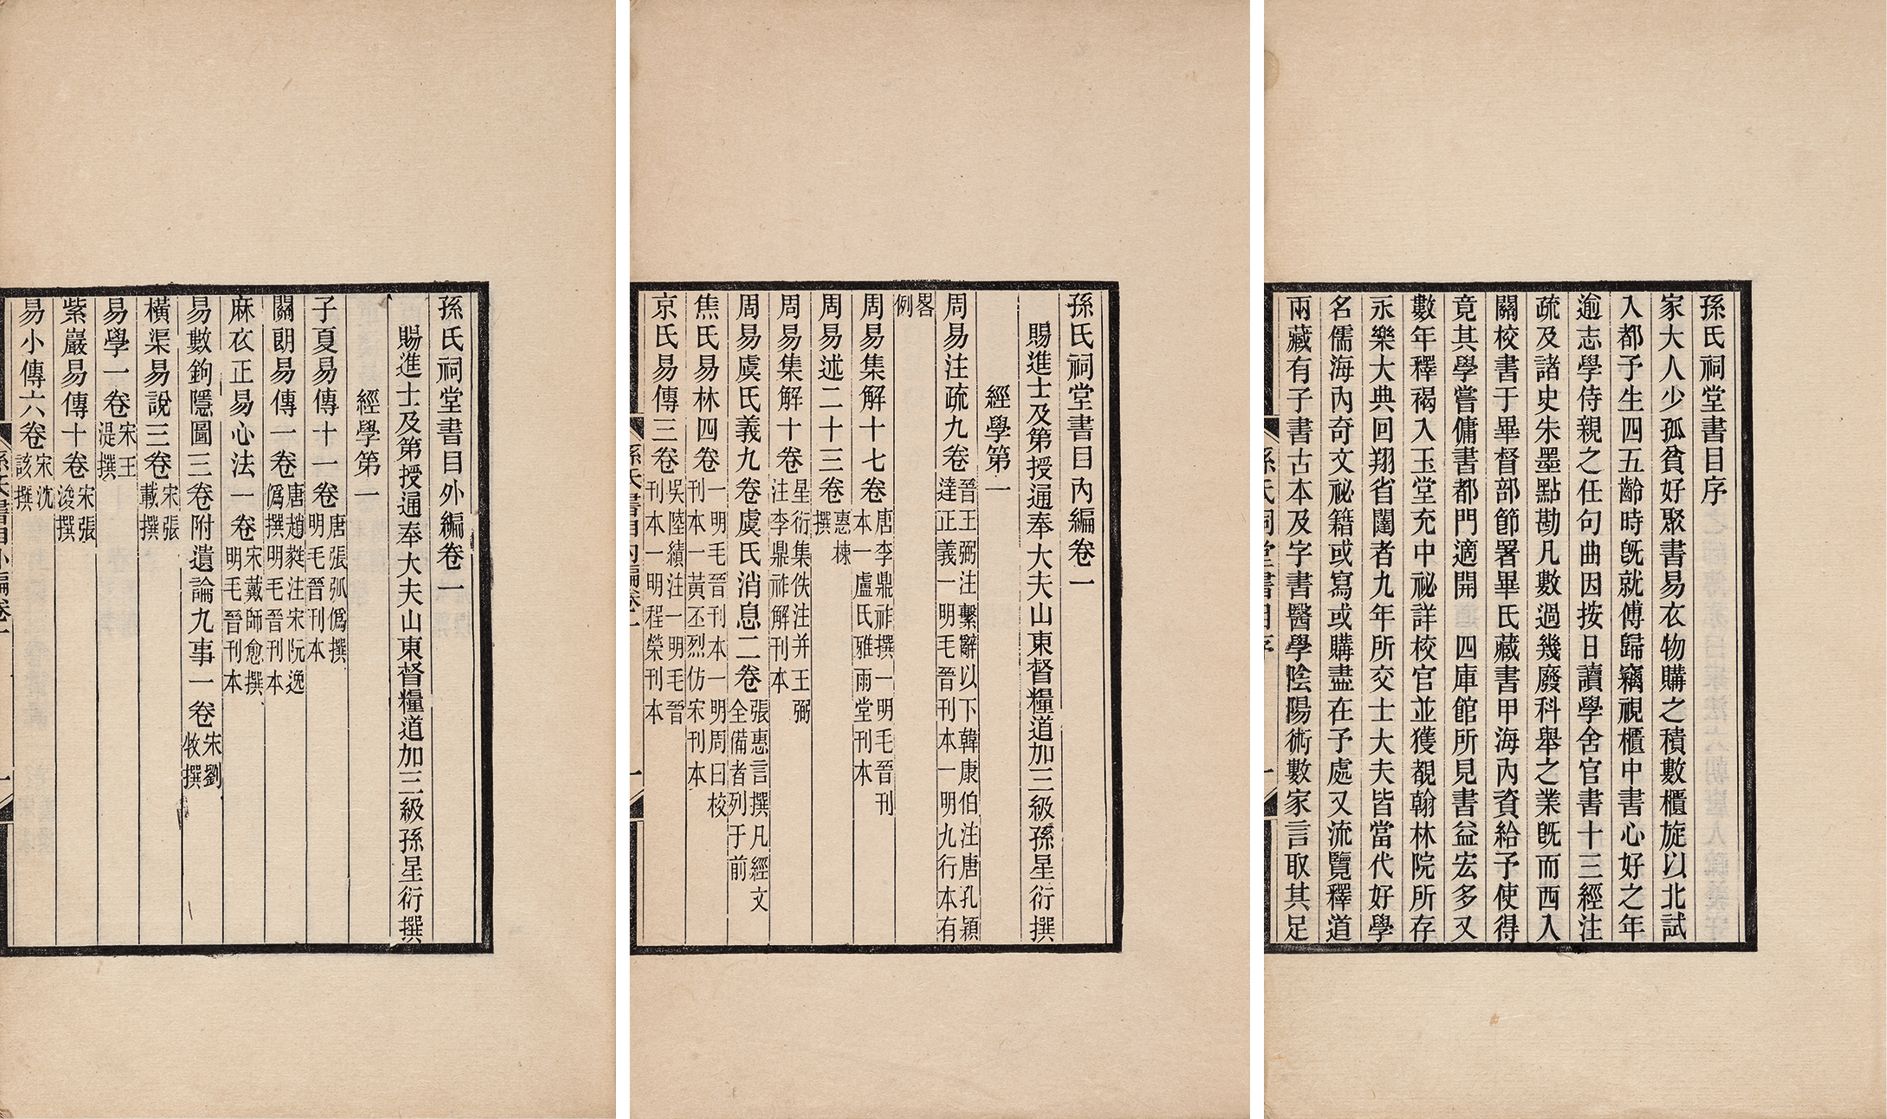 孫氏祠堂書目序
家大人少孤貧好聚書易衣物購之積數櫃旋以北試
入都予生四五齡時旣就傅歸竊視櫃中書心好之年
逾志學侍親之任句曲因按日讀學舍官書十三經注
疏及諸史朱墨點勘凡數過幾廢科舉之業旣而西入
關校書于畢督部節署畢氏藏書甲海內資給予使得
竟其學嘗傭書都門適開 四庫館所見書益宏多又
數年釋褐入玉堂充中祕詳校官並獲覩翰林院所存
永樂大典回翔省闥者九年所交士大夫皆當代好學
名儒海內奇文祕籍或寫或購盡在予處又流覽釋道
兩藏有子書古本及字書醫學陰陽術數家言取其足
孫氏祠堂書目序
一
孫氏祠堂書目內編卷一
賜進士及第授通奉大夫山東督糧道加三級孫星衍撰
經學第一
周易注疏九卷晉王弼注繫辭以下韓康伯注唐孔穎
達正義一明毛晉刊本一明九行本有
畧
例
周易集解十七卷唐李鼎祚撰一明毛晉刊
本一盧氏雅雨堂刊本
周易述二十三卷惠棟
撰
周易集解十卷星衍集佚注并王弼
注李鼎祚解刊本
周易虞氏義九卷虞氏消息二卷張惠言撰凡經文
全備者列于前
焦氏易林四卷一明毛晉刊本一明周曰校
刊本一黃丕烈仿宋刊本
京氏易傳三卷吳陸績注一明毛晉
刊本一明程榮刊本
孫氏書目內編卷一
一
孫氏祠堂書目外編卷一
賜進士及第授通奉大夫山東督糧道加三級孫星衍撰
經學第一
子夏易傳十一卷唐張弧僞撰
明毛晉刊本
關朗易傳一卷唐趙蕤注宋阮逸
僞撰明毛晉刊本
麻衣正易心法一卷宋戴師愈撰
明毛晉刊本
易數鉤隱圖三卷附遺論九事一卷宋劉
牧撰
橫渠易說三卷宋張
載撰
易學一卷宋王
湜撰
紫巖易傳十卷宋張
浚撰
易小傳六卷宋沈
該撰
孫氏書目外編卷一
一